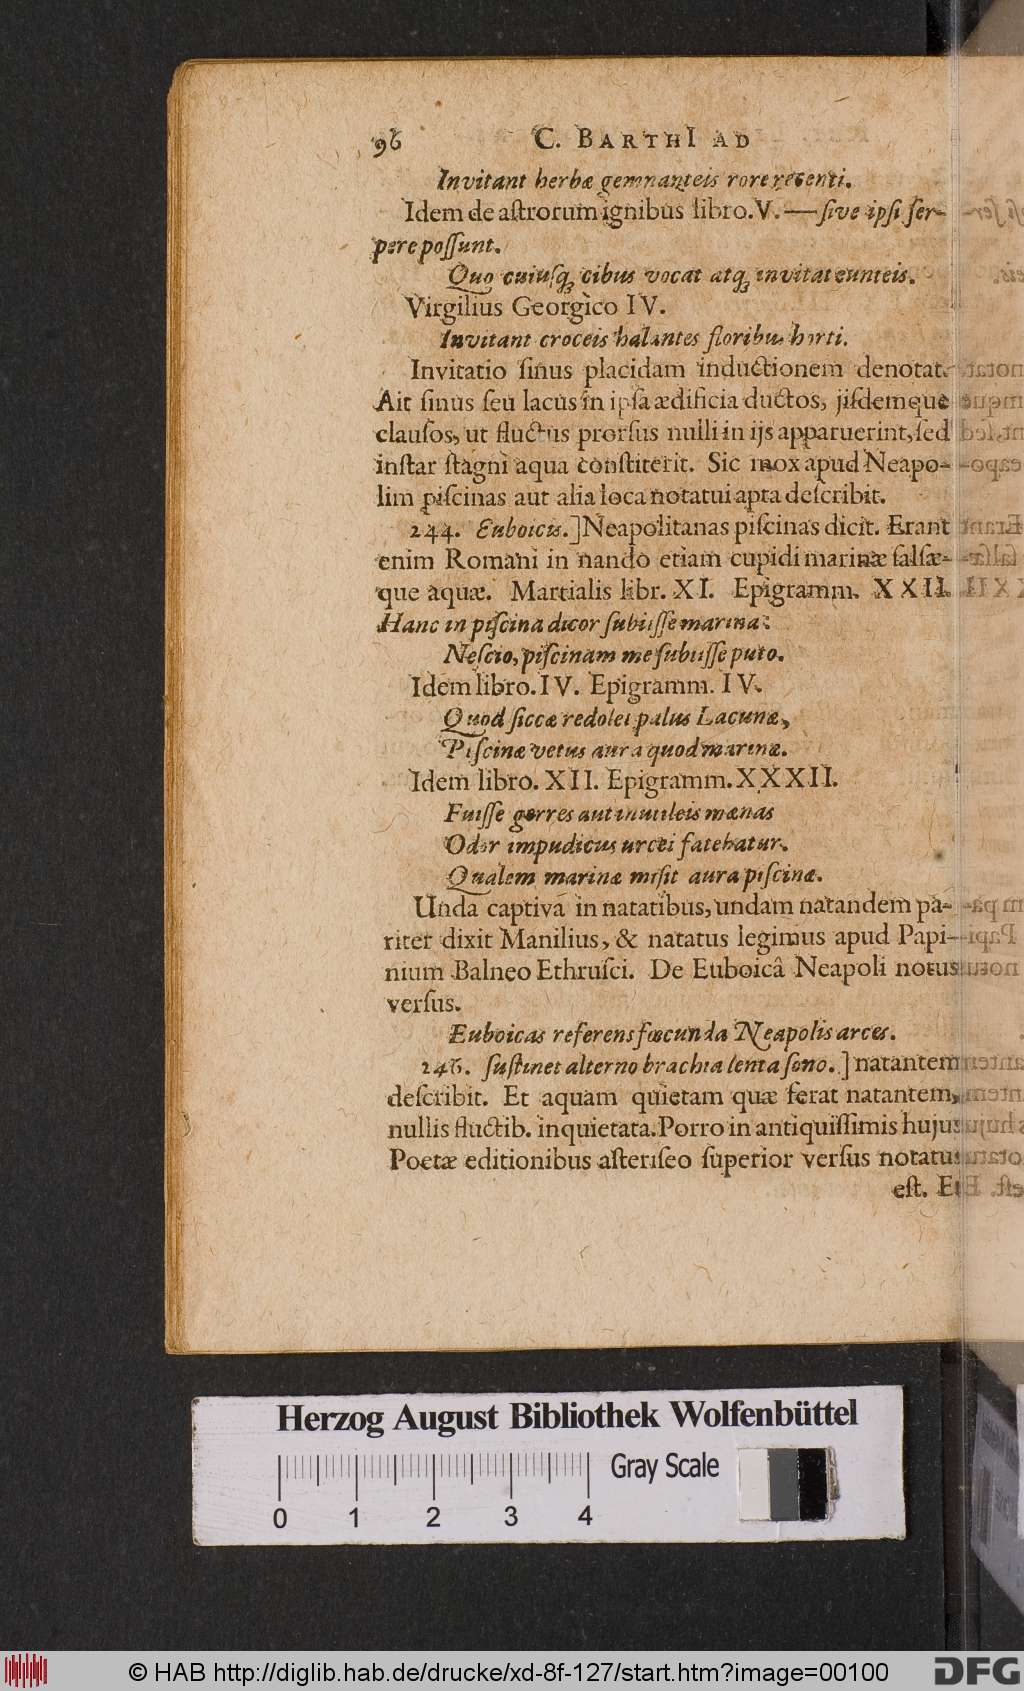 96 C. BARTHI AD
Invitant herbæ gemnanteis rore recenti.
Idem de aſtrorum ignibus libro. V. — ſive ipſi ſer-
pere poſſunt.
Quo cuiuſqꝫ cibus vocat atqꝫ invitat eunteis.
Virgilius Georgico IV.
Invitant croceis halantes floribus horti.
Invitatio ſinus placidam inductionem denotat.
Ait ſinus ſeu lacus in ipſa ædificia ductos, jiſdemque
clauſos, ut fluctus prorſus nulli in ijs apparuerint, ſed
inſtar ſtagni aqua conſtiterit. Sic mox apud Neapo-
lim piſcinas aut alia loca notatui apta deſcribit.
244. Euboicus.] Neapolitanas piſcinas dicit. Erant
enim Romani in nando etiam cupidi marinæ ſalſæ-
que aquæ. Martialis libr. XI. Epigramm. XXII.
Hanc in piſcina dicor ſubiiſſe marina:
Neſcio, piſcinam me ſubiiſſe puto.
Idem libro. IV. Epigramm. IV.
Quod ſiccæ redolet palus Lacunæ,
Piſcinæ vetus aura quod marinæ.
Idem libro. XII. Epigramm. XXXII.
Fuiſſe gerres aut inutileis mænas
Odor impudicus urcei fatebatur.
Qualem marinæ miſit aura piſcinæ.
Unda captiva in natatibus, undam natandem pa-
riter dixit Manilius, & natatus legimus apud Papi-
nium Balneo Ethruſci. De Euboicâ Neapoli notus
verſus.
Euboicas referens fœcunda Neapolis arces.
246. ſuſtinet alterno brachia lenta ſono.] natantem
deſcribit. Et aquam quietam quæ ferat natantem,
nullis fluctib. inquietata. Porro in antiquiſſimis hujus
Poetæ editionibus aſteriſeo ſuperior verſus notatus
eſt. Et
Herzog August Bibliothek Wolfenbüttel
Gray Scale
0 1 2 3 4
© HAB http://diglib.hab.de/drucke/xd-8f-127/start.htm?image=00100
DFG